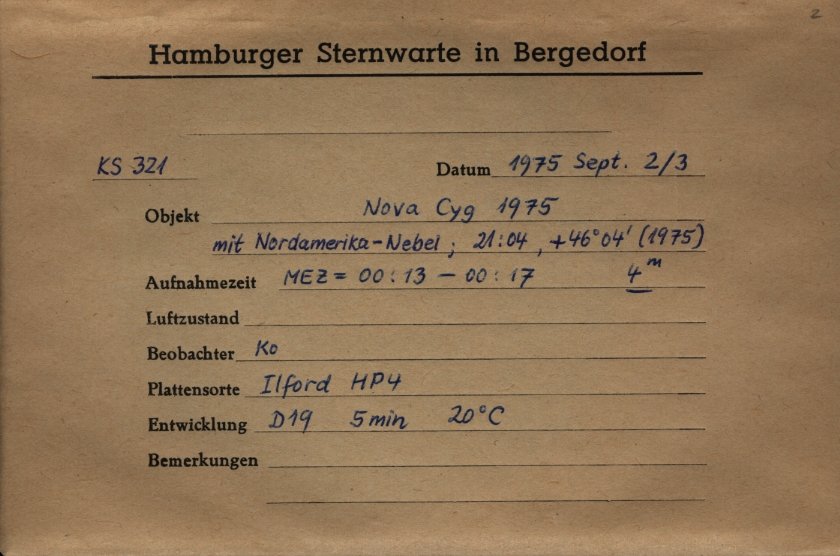 2
Hamburger Sternwarte in Bergedorf
KS 321 Datum 1975 Sept. 2/3
Objekt Nova Cyg 1975
mit Nordamerika-Nebel; 21:04, +46°04' (1975)
Aufnahmezeit MEZ = 00:13 — 00:17 4ᵐ
Luftzustand
Beobachter Ko
Plattensorte Ilford HP4
Entwicklung D19 5min 20°C
Bemerkungen